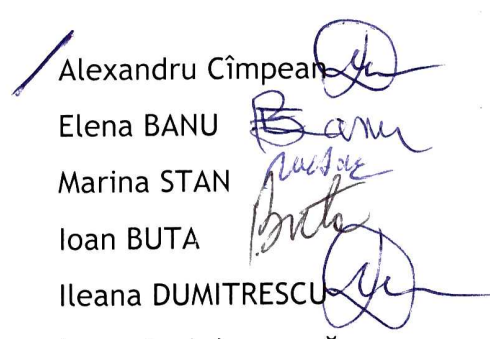 Alexandru Cîmpean
Elena BANU Banu
Marina STAN
Ioan BUTA Buta
Ileana DUMITRESCU